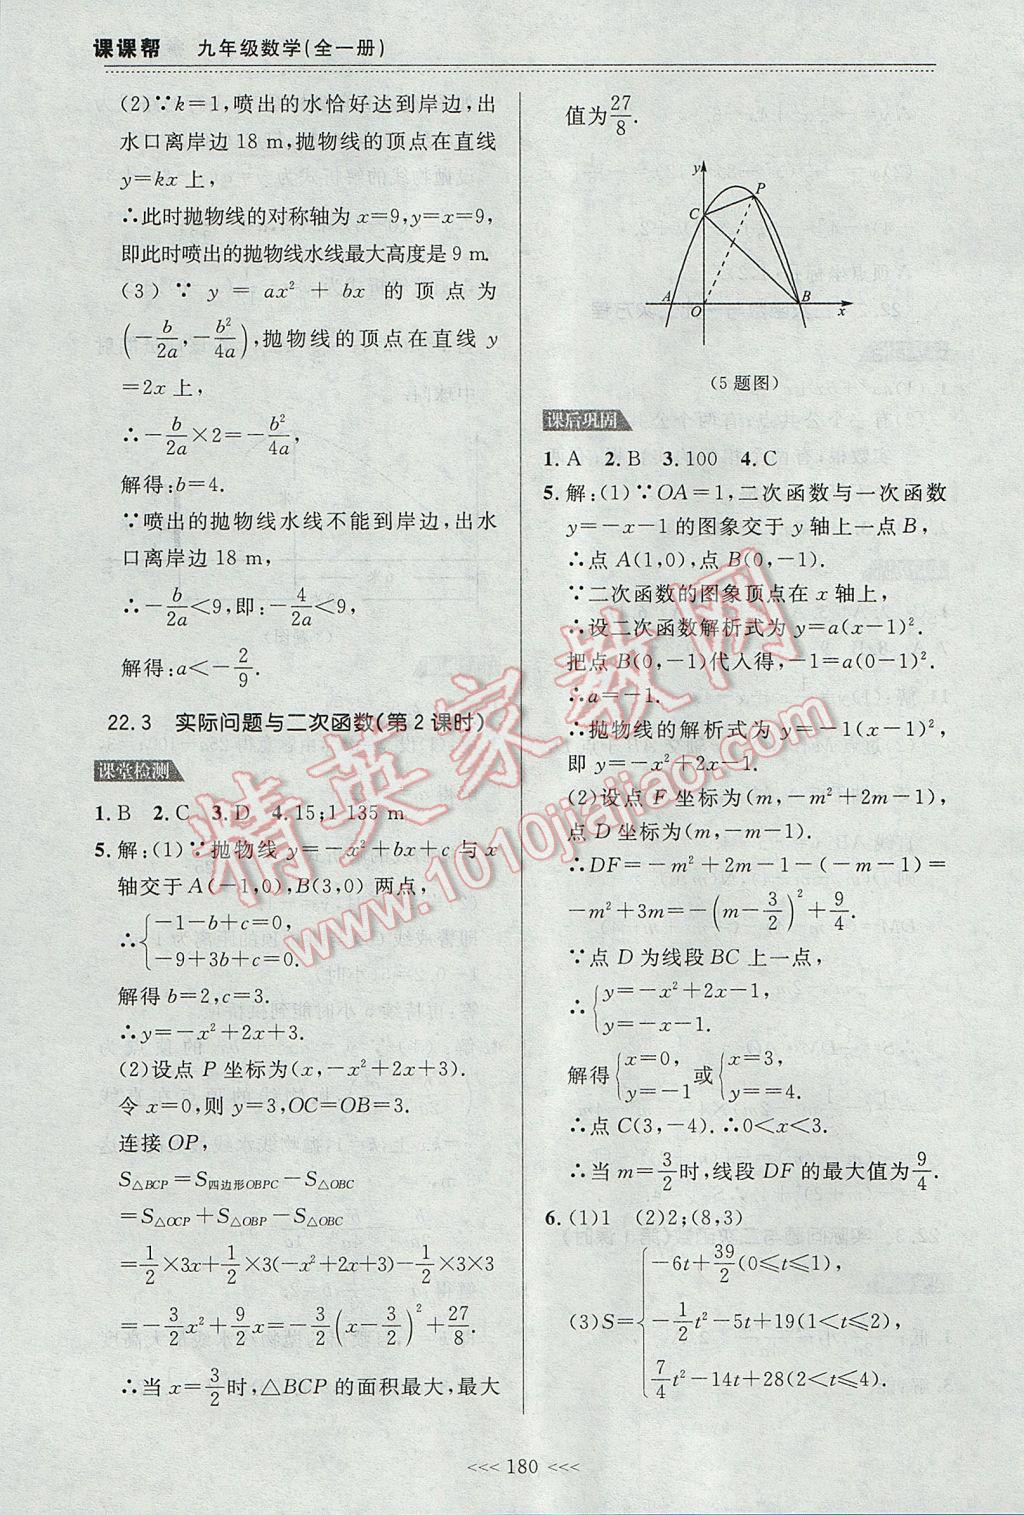 课课帮 九年级数学(全一册)
(2)∵k=1,喷出的水恰好达到岸边,出
水口离岸边 18 m,抛物线的顶点在直线
y=kx 上,
∴此时抛物线的对称轴为 x=9,y=x=9,
即此时喷出的抛物线水线最大高度是 9 m.
(3)∵ y = ax²+bx 的顶点为
(-b/2a,-b²/4a),抛物线的顶点在直线 y
=2x 上,
∴-b/2a×2=-b²/4a,
解得:b=4.
∵喷出的抛物线水线不能到岸边,出水
口离岸边 18 m,
∴-b/2a<9,即:-4/2a<9,
解得:a<-2/9.
22.3 实际问题与二次函数(第2课时)
课堂检测
1.B 2.C 3.D 4.15;1 135 m
5.解:(1)∵抛物线 y=-x²+bx+c 与 x
轴交于 A(-1,0),B(3,0) 两点,
∴{-1-b+c=0,
-9+3b+c=0.
解得 b=2,c=3.
∴y=-x²+2x+3.
(2)设点 P 坐标为(x,-x²+2x+3).
令 x=0,则 y=3,OC=OB=3.
连接 OP,
S△BCP=S四边形OBPC-S△OBC
=S△OCP+S△OBP-S△OBC
=1/2×3x+1/2×3(-x²+2x+3)-1/2×3×3
=-3/2x²+9/2x=-3/2(x-3/2)²+27/8.
∴当 x=3/2时,△BCP 的面积最大,最大
值为27/8.
y
P
C
A
O
B
x
(5题图)
课后巩固
1.A 2.B 3.100 4.C
5.解:(1)∵OA=1,二次函数与一次函数
y=-x-1的图象交于 y 轴上一点 B,
∴点 A(1,0),点 B(0,-1).
∵二次函数的图象顶点在 x 轴上,
∴设二次函数解析式为 y=a(x-1)².
把点 B(0,-1)代入得,-1=a(0-1)².
∴a=-1.
∴抛物线的解析式为 y=-(x-1)²,
即 y=-x²+2x-1.
(2)设点 F 坐标为(m,-m²+2m-1),
点 D 坐标为(m,-m-1).
∴DF=-m²+2m-1-(-m-1)=
-m²+3m=-(m-3/2)²+9/4.
∵点 D 为线段 BC 上一点,
∴{y=-x²+2x-1,
y=-x-1.
解得{x=0, y=-1 或{x=3, y==4.
∴点 C(3,-4).∴0<x<3.
∴当 m=3/2时,线段 DF 的最大值为9/4.
6.(1)1 (2)2;(8,3)
(3)S={-6t+39/2(0≤t≤1),
-1/2t²-5t+19(1<t≤2),
7/4t²-14t+28(2<t≤4).
<<< 180 <<<
精英家教网
www.1010jiajiao.com